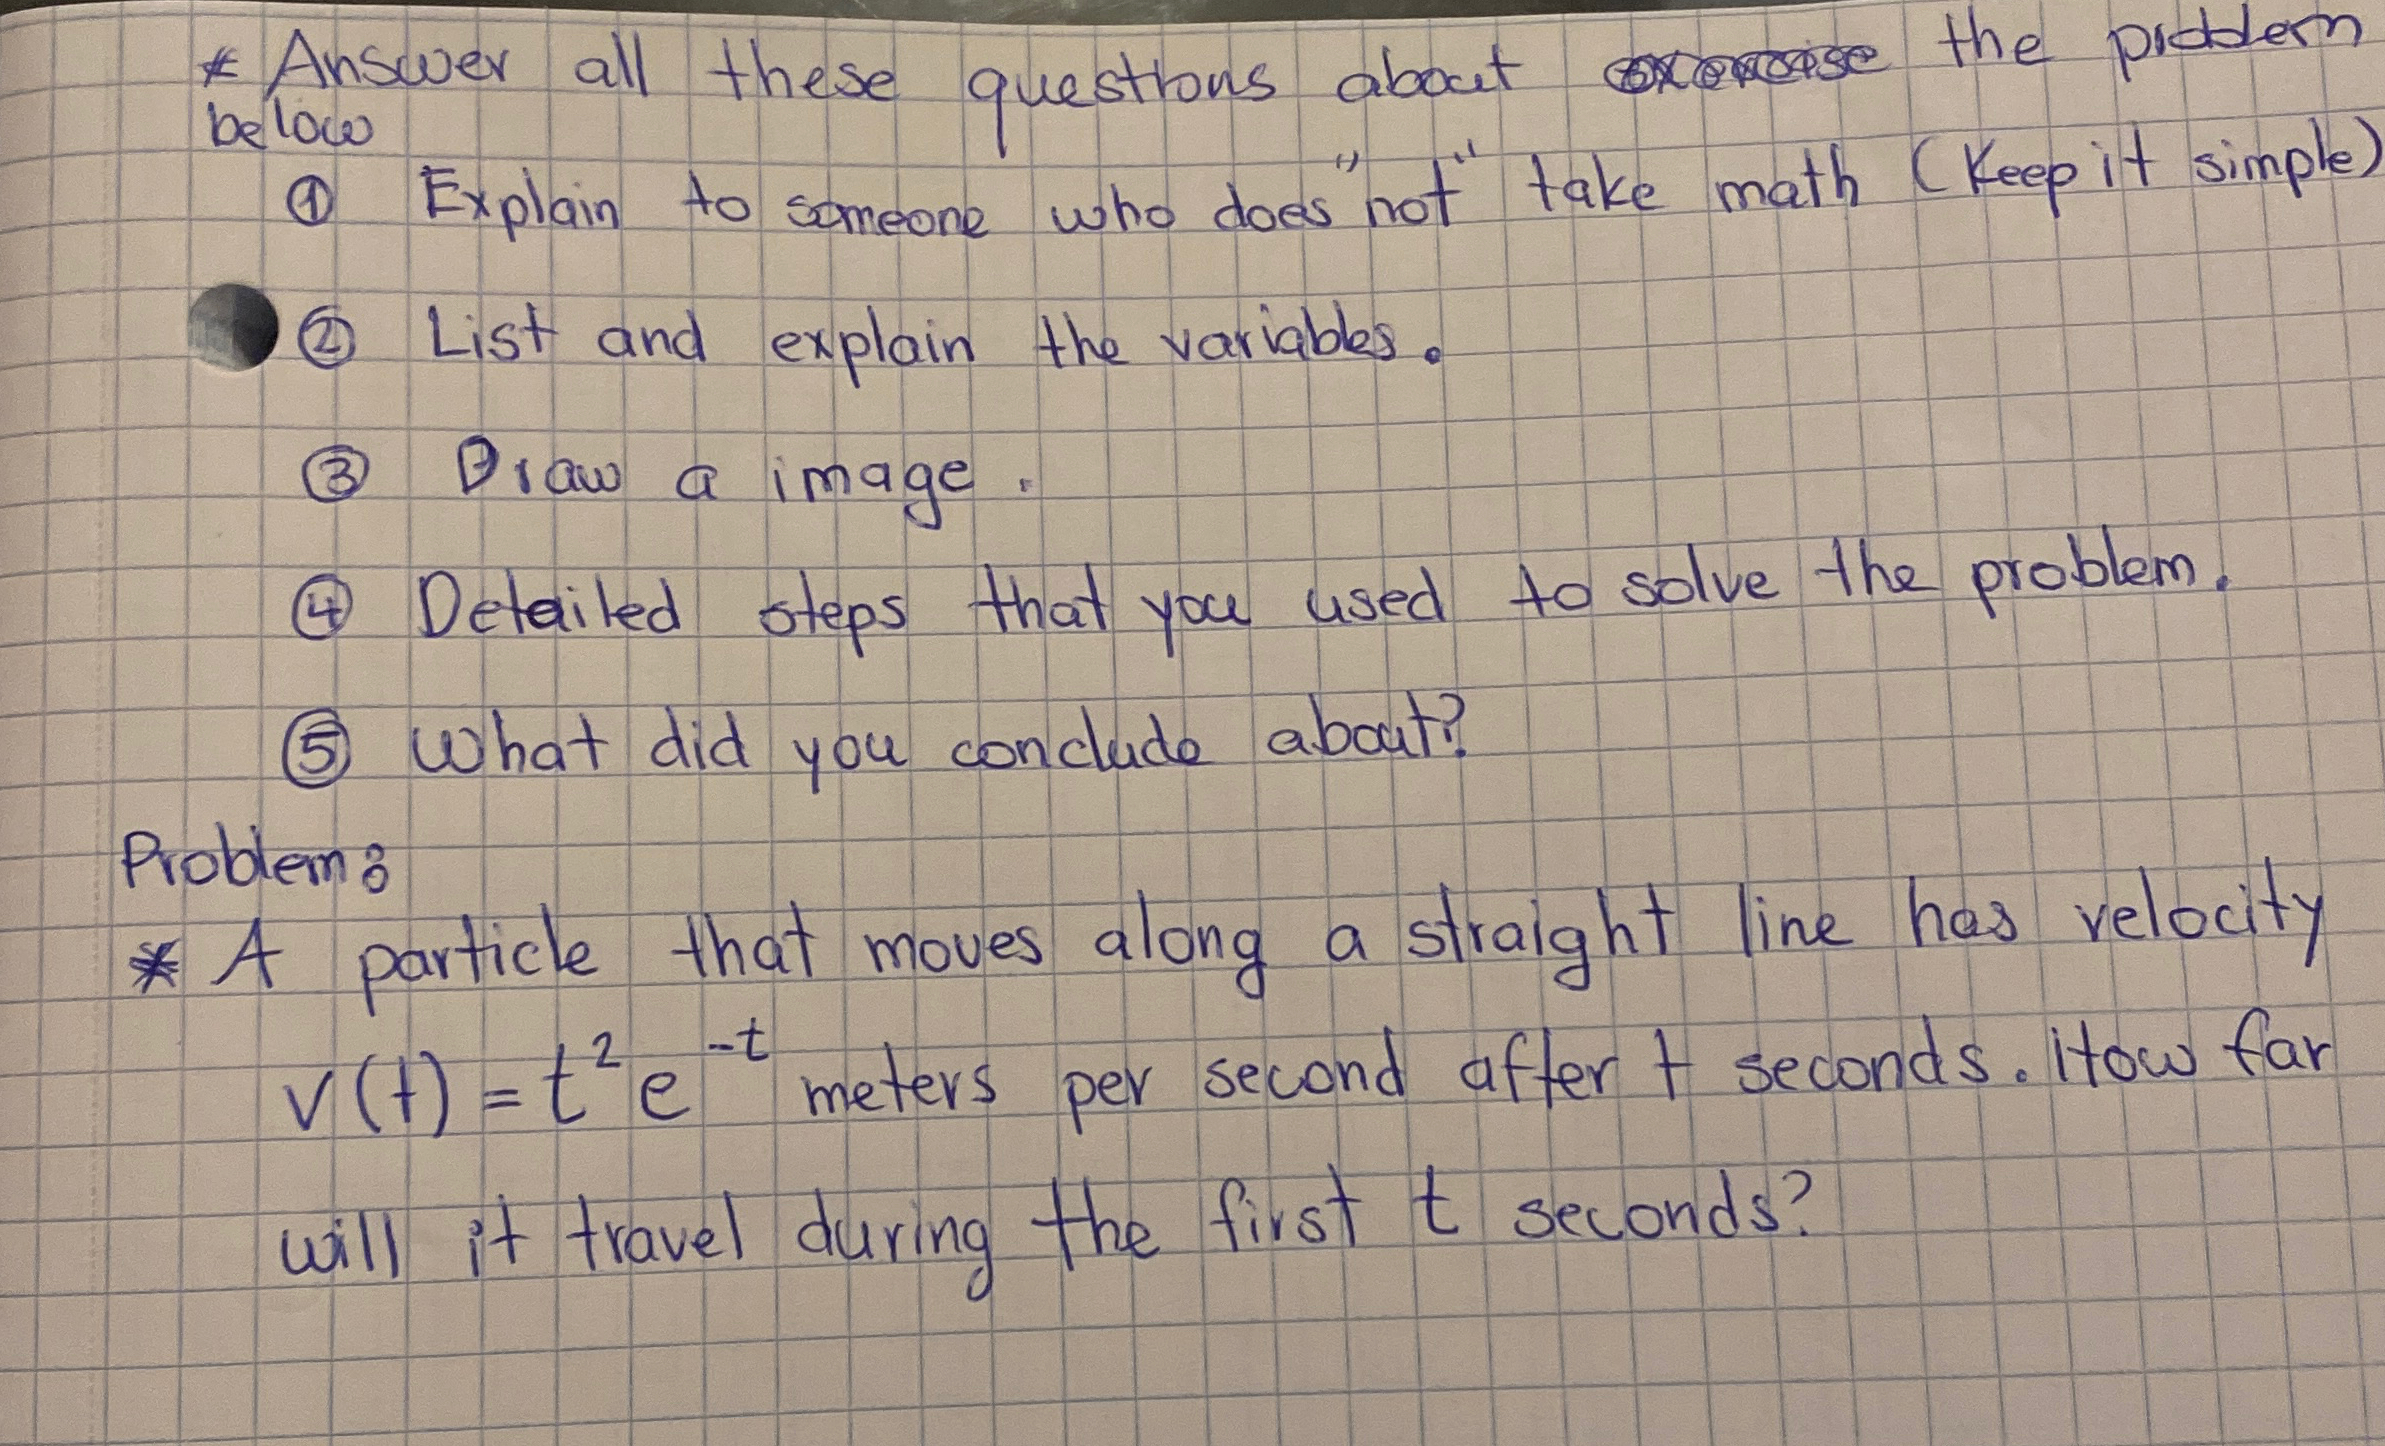 * Answer all these questions about exercise the problem
below
① Explain to someone who does "not" take math (Keep it simple)
② List and explain the variables.
③ Draw a image.
④ Detailed steps that you used to solve the problem.
⑤ What did you conclude about?
Problem:
* A particle that moves along a straight line has velocity
v(t) = t² e⁻ᵗ meters per second after t seconds. How far
will it travel during the first t seconds?